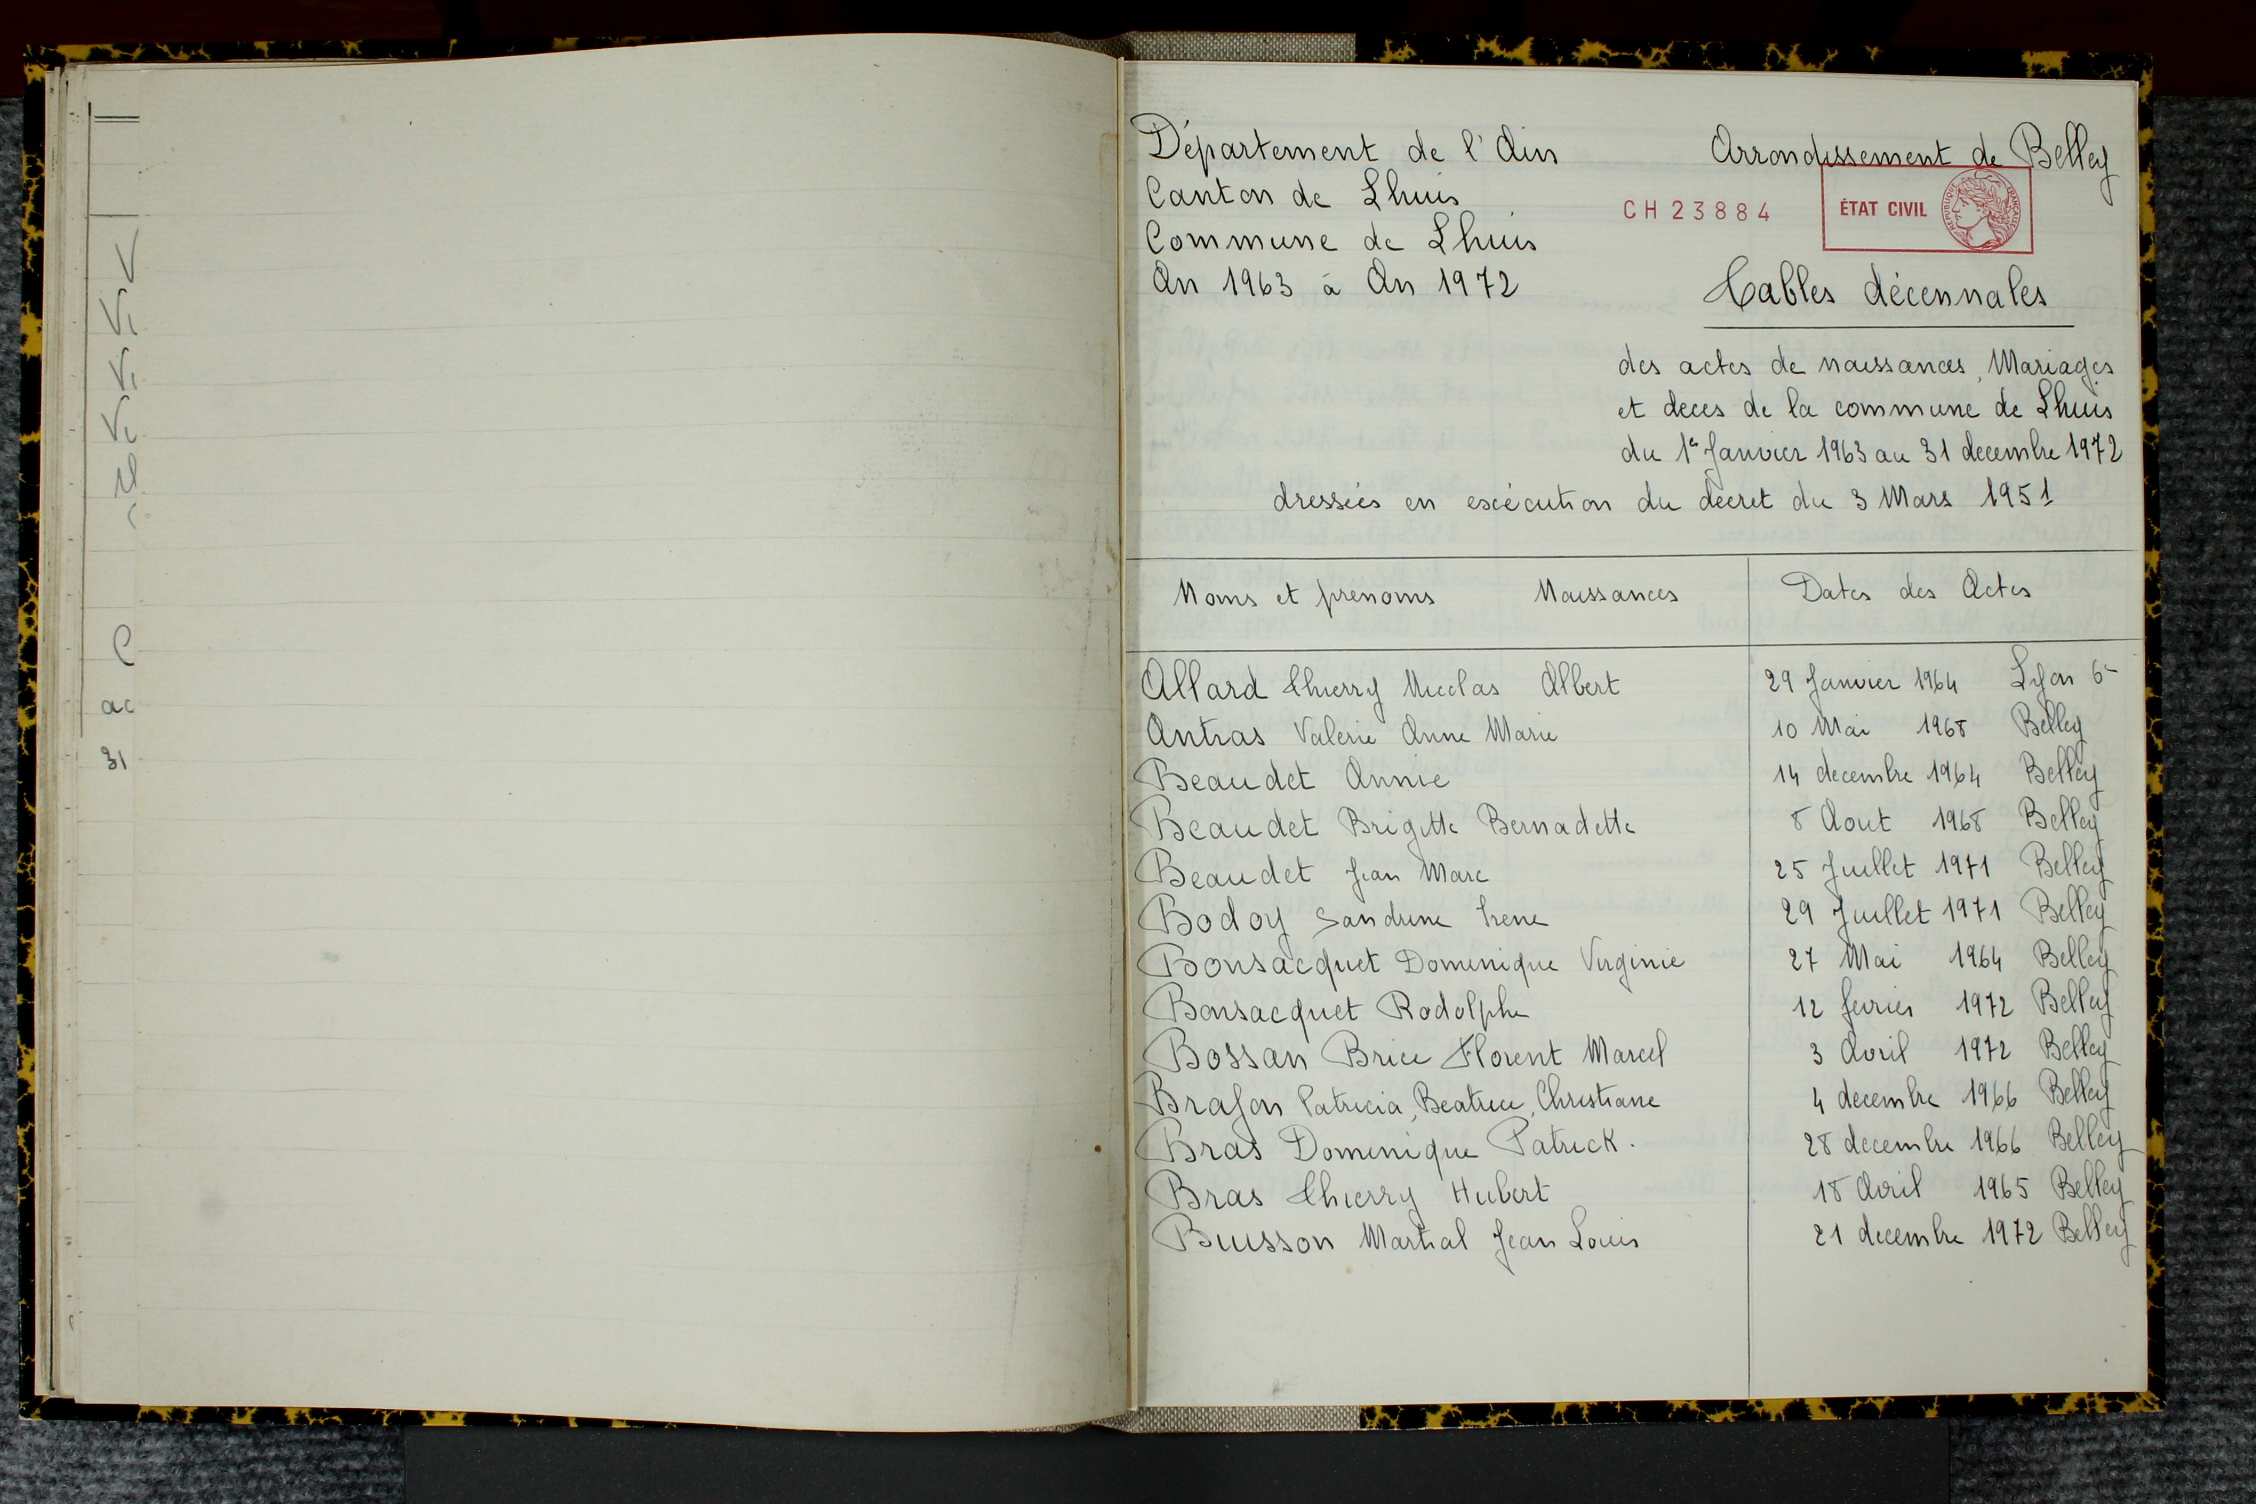 V
Vi
Vi
Vi
C
ac
31
Département de l'Ain
Arrondissement de Belley
Canton de Lhuis
CH 23884
ÉTAT CIVIL
RÉPUBLIQUE FRANÇAISE
Commune de Lhuis
An 1963 à An 1972
Tables décennales
des actes de naissances, Mariages
et deces de la commune de Lhuis
du 1er Janvier 1963 au 31 decembre 1972
dressées en exécution du décret du 3 Mars 1951
Noms et prenoms Naissances Dates des Actes
Allard Thierry Nicolas Albert 29 Janvier 1964 Lyon 6e
Antras Valerie Anne Marie 10 Mai 1968 Belley
Beaudet Annie 14 decembre 1964 Belley
Beaudet Brigitte Bernadette 8 Aout 1968 Belley
Beaudet Jean Marc 25 Juillet 1971 Belley
Bodoy Sandrine Irene 29 Juillet 1971 Belley
Bonsacquet Dominique Virginie 27 Mai 1964 Belley
Bonsacquet Rodolphe 12 fevrier 1972 Belley
Bossan Brice Florent Marcel 3 Avril 1972 Belley
Brafon Patricia, Beatrice, Christiane 4 decembre 1966 Belley
Bras Dominique Patrick. 28 decembre 1966 Belley
Bras Thierry Hubert 18 Avril 1965 Belley
Buisson Martial Jean Louis 21 decembre 1972 Belley